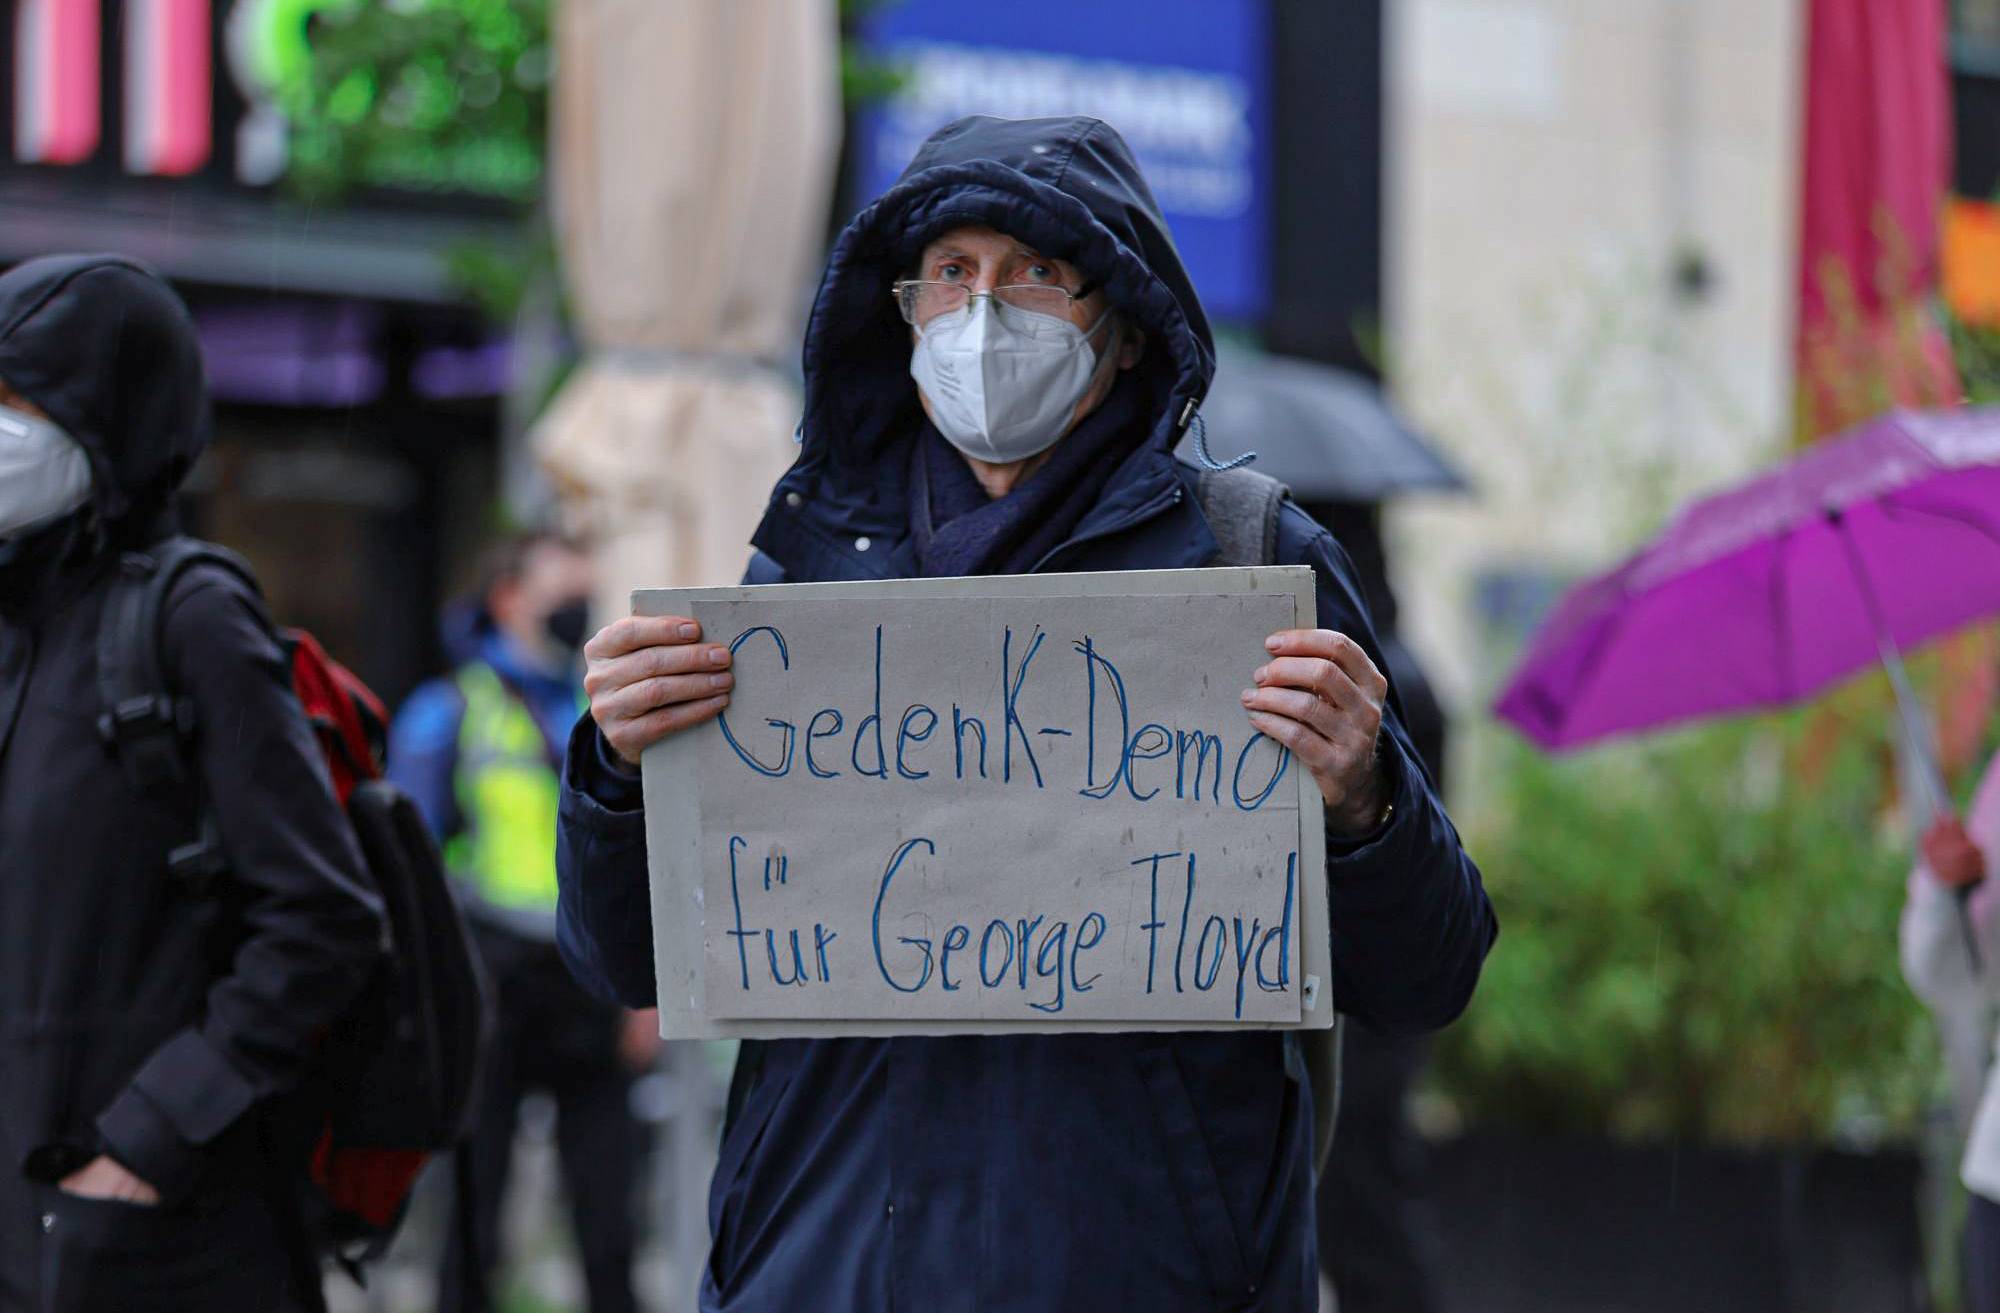 Gedenk-Demo
für George Floyd